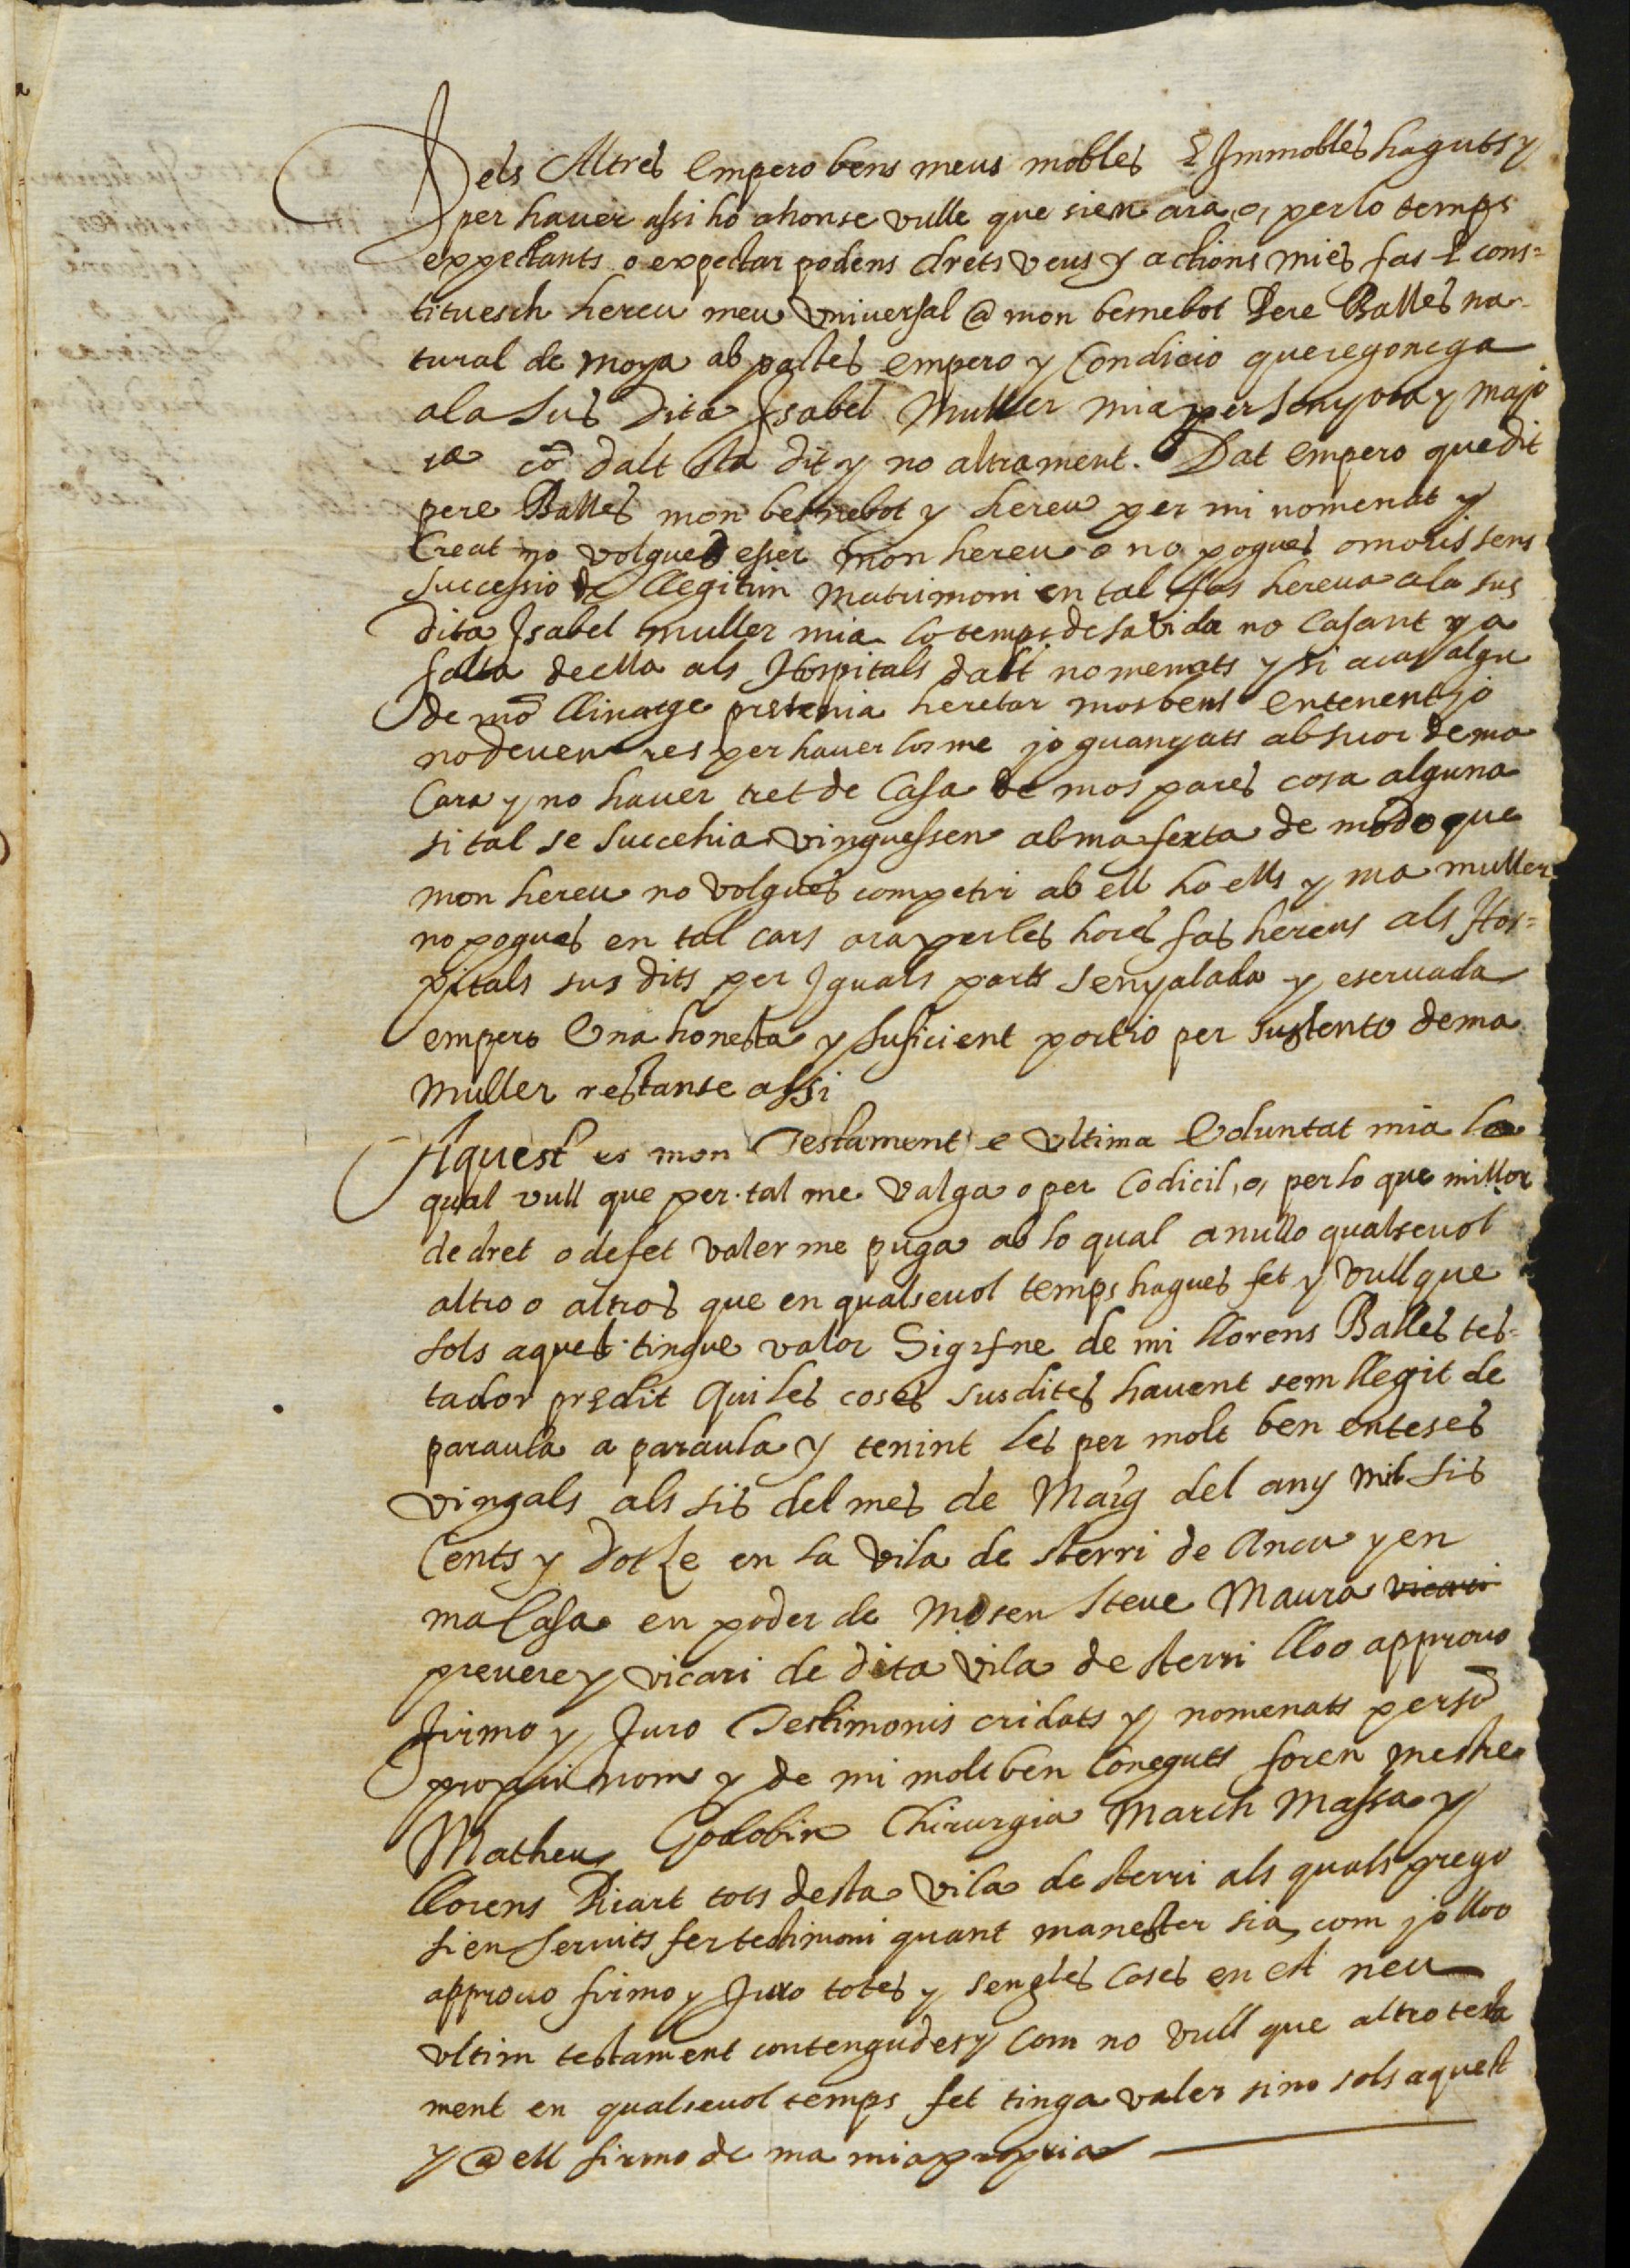 Dels Altres empero bens meus mobles E Immobles haguts y
per hauer assi ho ahonse vulle que sien ara, o, per lo temps
expectants o expectar podens drets veus y actions mies fas E cons=
tituesch hereu meu vniuersal @ mon besnebot Pere Balles na-
tural de moya ab pactes empero y Condicio queregonega
ala sus dita Isabel Muller mia per senyora y majo
ra cō dalt sta dit y no altrament. Dat empero que dit
pere Balles mon besnebot y hereu per mi nomenat y
Creat no volgues esser mon hereu o no pogues o moris sens
successio de llegitim matrimoni en tal fas hereua ala sus
dita Isabel muller mia lo temps de sa vida no Casant y a
falta de ella als Hospitals dalt nomenats y si acas algu
de mō llinatge pretenia heretar mos bens entenent jo
no deuen res per hauer los me jo guanyats ab suor de ma
Cara y no hauer tret de Casa de mos pares cosa alguna
si tal se succehia vinguessen ab ma sexta de modo que
mon hereu no volgues competir ab ell ho ells y ma muller
no pogues en tal cars ara per les hores fas hereus als Hos=
pitals sus dits per Iguals parts senyalada y eseruada
empero Vna honesta y suficient portio per sustento de ma
Muller restantse assi
Aquest es mon Testament e vltima Voluntat mia la
qual vull que per tal me valga o per Codicil, o, per lo que millor
de dret o de fet valer me puga ab lo qual anullo qualseuol
altro o altros que en qualseuol temps hagues fet y vull que
sols aquest tingue valor Sig+ne de mi llorens Balles tes=
tador predit Qui les coses susdites hauent sem llegit de
paraula a paraula y tenint les per molt ben enteses
vingals als sis del mes de Maig del any Mil sis
Cents y dotze en la vila de sterri de Aneu y en
ma Casa en poder de Mosen Steue Maura vicari
preuere y vicari de dita vila de sterri lloo approuo
firmo y Juro Testimonis cridats y nomenats per sō
propri nom y de mi molt ben Coneguts foren mestre
Matheu Godobin Chirurgia March Massa y
llorens Ricart tots desta vila de sterri als quals prego
sien seruits fer testimoni quant manester sia com jo lloo
approuo firmo y Juro totes y sengles Coses en est meu
vltim testament contengudes y Com no vull que altro testa
ment en qualseuol temps fet tinga valer sino sols aquest
y @ ell firmo de ma mia propria